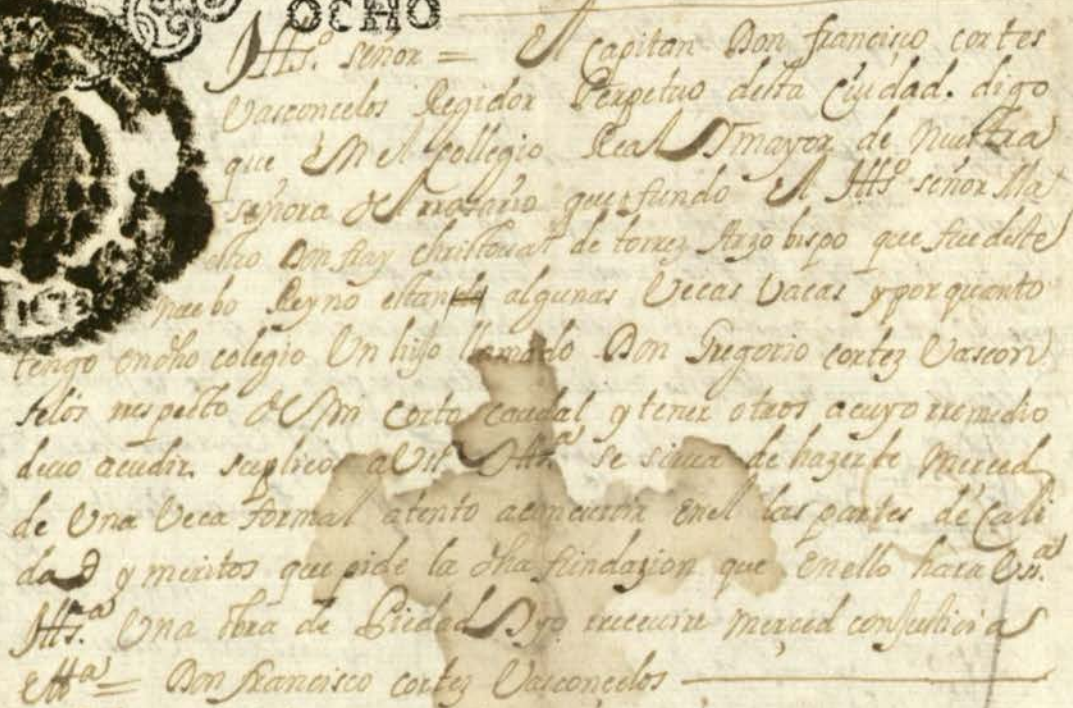 OCHO
Illsº. señor = El Capitan Don francisco cortes
Vasconcelos Regidor Perpetuo desta Ciudad. digo
que En el Collegio Real Y mayor de Nuestra
señora del rrozario que fundo El Illsº señor Ma
estro Don fray christoual de torrez Arzobispo que fue deste
nuebo Reyno estan algunas Vecas Vacas y por quanto
tengo en dho colegio Un hijo llamado Don Gregorio cortez Vascon
selos respecto de mi corto caudal y tener otros a cuyo rremedio
deuo acudir. suplico a Vs. Illsª se sirua de hazerle Merced
de Una Veca formal atento a concurrir en el las partes de Cali
dad y meritos que pide la dha fundazion que en ello hara Vs.ª
Illsª. Una obra de Piedad Y yo receuire merced con Justicia
Ettª = Don francisco cortez Vasconcelos